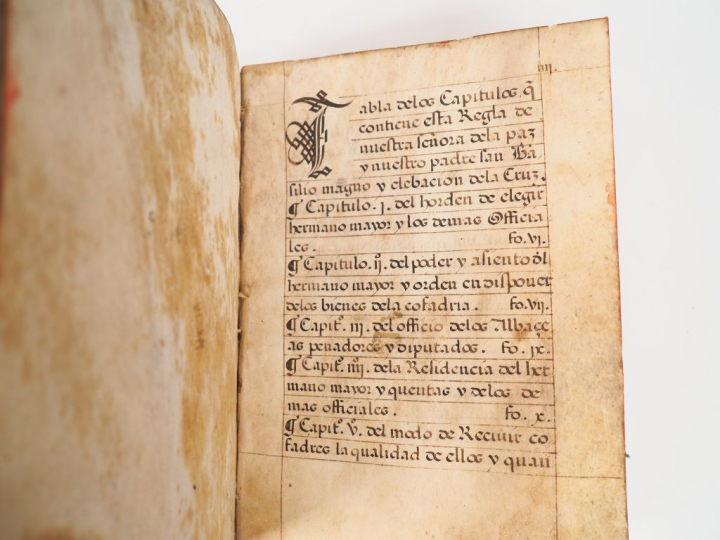 iii.
Tabla delos Capitulos, q̃
contiene esta Regla de
nuestra señora dela paz
y nuestro padre san Ba
silio magno y elebacion dela Cruz.
¶ Capitulo. j. del horden de elegir
hermano mayor y los demas Officia
les. fo. vi.
¶ Capitulo. ij. del poder y asiento ðl
hermano mayor y orden en disponer
delos bienes dela cofadria. fo. vij.
¶ Capit.º iij. del officio delos Albaçe
as penadores y diputados. fo. ix.
¶ Capit.º iiij. dela Residencia del her
mano mayor y quentas y delos de
mas officiales. fo. x.
¶ Capit.º v. del modo de Recivir co
fadres la qualidad de ellos y quan